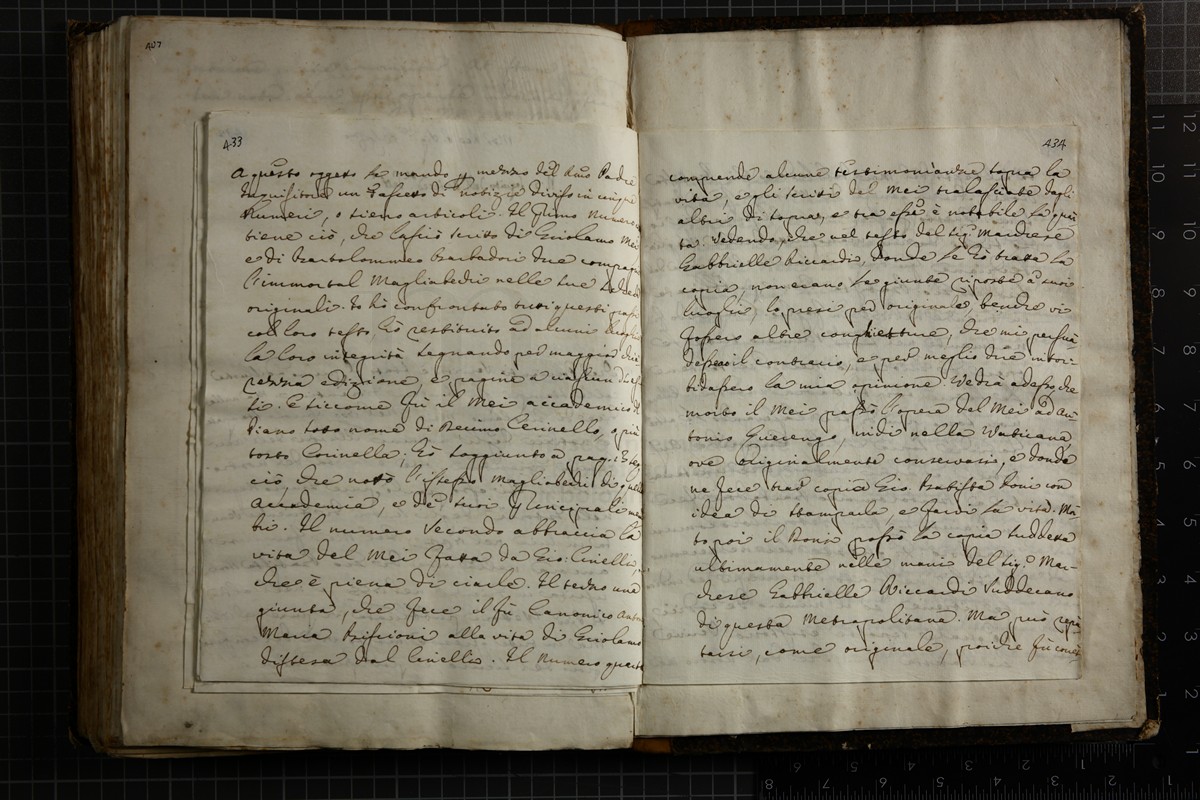 407
433
A questo oggetto le mando p mezzo del Rmo Padre
Inquisitore un fascetto di notizie diviso in cinque
Numeri, o sieno articoli. Il primo numero
tiene ciò, che lasciò scritto di Girolamo Mei
e di Bartolommeo Barbadori due
l'immortal Magliabechi nelle sue schede
originali. Io hò confrontato tutti questi
col loro testo, hò restituito ad alcuni luoghi
la loro integrità segnando per maggior
rezzia edizione, e pagine a ciascun
to. E siccome fù il Mei accademico
Piano sotto nome di Decimo Corinello, o più
tosto Corinella, hò soggiunto a pag.
ciò che notò l'istesso Magliabechi di quella
accademia, e de' suoi principali
bri. Il numero secondo abbraccia la
vita del Mei fatta da Gio: Cinelli,
che è piena di ciarle. Il terzo una
giunta, che fece il fù Canonico Anton
Maria Biscioni alla vita di Girolamo
distesa dal Cinelli. Il numero quarto
434
comprende alcune testimonianze sopra la
vita, e gli scritti del Mei tralasciate dagli
altri di sopra, e tra esse è notabile la quin
ta. Vedendo, che nel testo del Sig. Marchese
Gabbrielle Riccardi, donde se hò tratta la
copia, non erano le giunte riposte a' suoi
luoghi, lo presi per originale, benche vi
fossero altre conghietture, che mi persua
dessero il contrario, e per meglio dire intor-
bidassero la mia opinione. Vedrà adesso, che
morto il Mei passò l'opera del Mei ad An-
tonio Querengo, indi nella Vaticana
ove originalmente conservasi, e donde
ne fece trar copia Gio. Batista Doni con
idea di stamparla, e farvi la vita. Mor
to poi il Doni passò la copia suddetta
ultimamente nelle mani del Sig. Mar-
chese Gabbrielle Riccardi Suddecano
di questa Metropolitana. Ma può ripu
tarsi, come originale, poiche fù